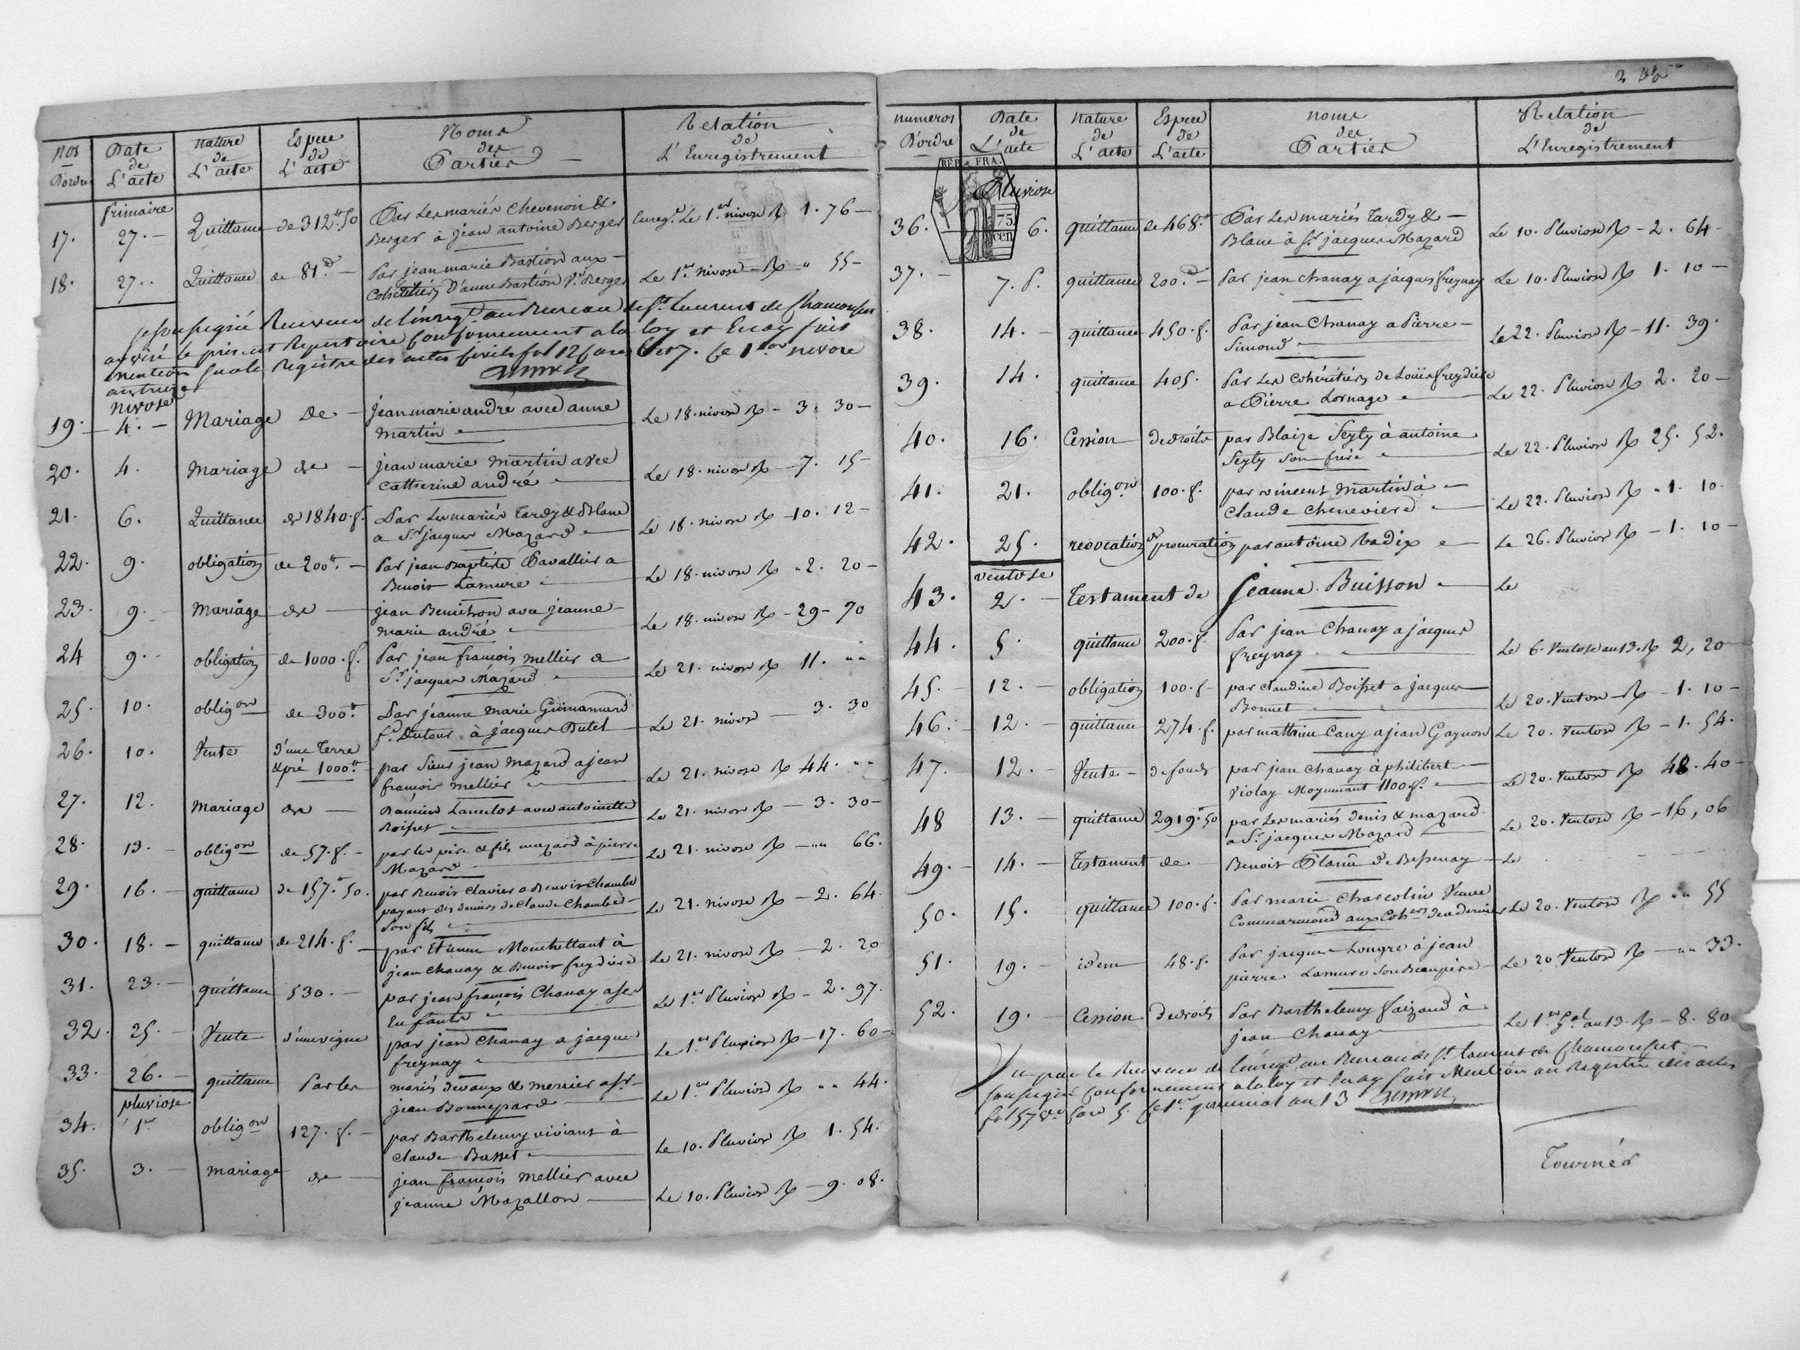 Nos D'ordre | Date de L'acte | nature de L'acte | Espece de L'acte | Noms des Parties | Relation de L'Enregistrement
frimaire
17. | 27. | Quittance | de 312tt 50 | Par Les mariés Chevenon &
Berger à Jean antoine Berger | Enreg.é Le 1.er nivose R 1. 76
18. | 27. | Quittance | de 81 | Par jean marie Bastion aux
Cohéritiers D'anne Bastion | Le 1.er nivose R " 55
je soussigné Receveur de l'enreg.t au Bureau de St. Laurent de Chamousset
ai visé le présent Repertoire Conformement a la loy et En ay fait
mention sur le Registre des actes civils fol 12 Ce 1.er nivose
an treize
nivose
19. | 4. | Mariage | de | jean marie andré avec anne
martin | Le 18. nivose R 3. 30
20. | 4. | mariage | de | jean marie martin avec
Catherine andré | Le 18. nivose R 7. 15
21. | 6. | Quittance | de 1840. f. | Par Les mariés Tardy & Blanc
a Sr. jacques Mazard | Le 18. nivose R 10. 12
22. | 9. | obligation | de 200tt. | Par jean Baptiste Cavallier a
Benoit Lamure | Le 18. nivose R 2. 20
23. | 9. | mariage | de | jean Benichon avec jeanne
marie andré | Le 18. nivose R 29. 70
24 | 9. | obligation | de 1000. f. | Par jean françois mellier a
Sr. jacques Mazard | Le 21. nivose R 11. ""
25. | 10. | oblig.on | de 300tt | Par jeanne marie Guinamard
f.e Dutour à jacques Dutel | Le 21. nivose 3. 30
26. | 10. | Vente | d'une Terre
& pré 1000tt | par Sieur jean Mazard a jean
françois mellier | Le 21. nivose R 44. ""
27. | 12. | mariage | de | Damien Lancelot avec antoinette
Boisset | Le 21. nivose R 3. 30
28. | 13. | oblig.on | de 57. f. | par les père & fils mazard à pierre
Mazard | Le 21. nivose R "" 66.
29. | 16. | quittance | de 157tt 50. | par Benoit Clavier a Benoit Chambe
payant des deniers de Claude Chambe
son fils | Le 21. nivose R 2. 64
30. | 18. | quittance | de 214. f. | par Etienne Mouchettant à
jean Chanay & Benoit freydiere | Le 21. nivose R 2. 20
31. | 23. | quittance | 530. | par jean françois Chanay a ses
Enfants | Le 1.er Pluviose R 2. 97.
32. | 25. | Vente | d'une vigne | par jean Chanay a jacque
freynay | Le 1.er Pluviose R 17. 60
33. | 26. | quittance | Par les | mariés devaux & mercier a Sr.
jean Bonnepard | Le 1.er Pluviose R "" 44.
pluviose
34. | 1.er | oblig.on | 127. f. | par Barthelemy viviant à
Claude Basset | Le 10. Pluviose R 1. 54.
35. | 3. | mariage | de | jean françois mellier avec
jeanne Mazallon | Le 10. Pluviose R 9. 08.
numeros D'ordre | Date de L'acte | nature de L'acte | Espece de L'acte | noms des Parties | Relation de L'Enregistrement
RÉP. FRA.
75
cen
Pluviose
36. | 6. | quittance | de 468tt | Par Les mariés Tardy &
Blanc à Sr. jacques Mazard | Le 10. Pluviose R 2. 64
37. | 7. | quittance | 200. | Par jean Chanay a jacques freynay | Le 10. Pluviose R 1. 10
38. | 14. | quittance | 450. f. | Par jean Chanay a Pierre
Simond | Le 22. Pluviose R 11. 39.
39. | 14. | quittance | 405. | Par Les Cohéritiers de Louis freydiere
a Pierre Lornage | Le 22. Pluviose R 2. 20
40. | 16. | Cession | de droits | par Blaize Seyty à antoine
Seyty son frère | Le 22. Pluviose R 25. 52.
41. | 21. | oblig.on | 100. f. | par vincent martin à
Claude Cheneviere | Le 22. Pluviose R 1. 10.
42. | 25. | revocation | de procuration | par antoine badix | Le 26. Pluviose R 1. 10
ventose
43. | 2. | Testament de | jeanne Buisson | Le
44. | 5. | quittance | 200. f. | Par jean Chanay a jacques
freynay | Le 6. Ventose an 13. R 2, 20
45. | 12. | obligation | 100. f. | par Claudine Boisset a jacques
Bonnet | Le 20. Ventose R 1. 10
46. | 12. | quittance | 274. f. | par mathieu Cany a jean Gagnon | Le 20. Ventose R 1. 54.
47. | 12. | Vente | de fonds | par jean Chanay à philibert
Violay Moyennant 1100 f. | Le 20. Ventose R 48. 40
48 | 13. | quittance | 2919tt 50 | par Les mariés denis & mazard
a Sr. jacques Mazard | Le 20. Ventose R 16, 06
49. | 14. | Testament | de | Benoit Plane de Bessenay | Le
50. | 15. | quittance | 100. f. | Par marie Charcolin Veuve
Commarmond aux Coh.ers de ce dernier | Le 20. Ventose R "" 55
51. | 19. | idem | 48. f. | Par jacque Longre à jean
pierre Lamure Son Beaupère | Le 20 Ventose R "" 33.
52. | 19. | Cession | de droits | Par Barthelemy faizand à
jean Chanay | Le 1.er G.al an 13. R 8. 80
Vu par le Receveur de l'enreg.t au Bureau de St. Laurent de Chamousset
soussigné Conformement a la loy et En ay fait Mention au Registre des actes
fol 57 v.o Case 5. Ce 1.er germinal an 13
Tournés